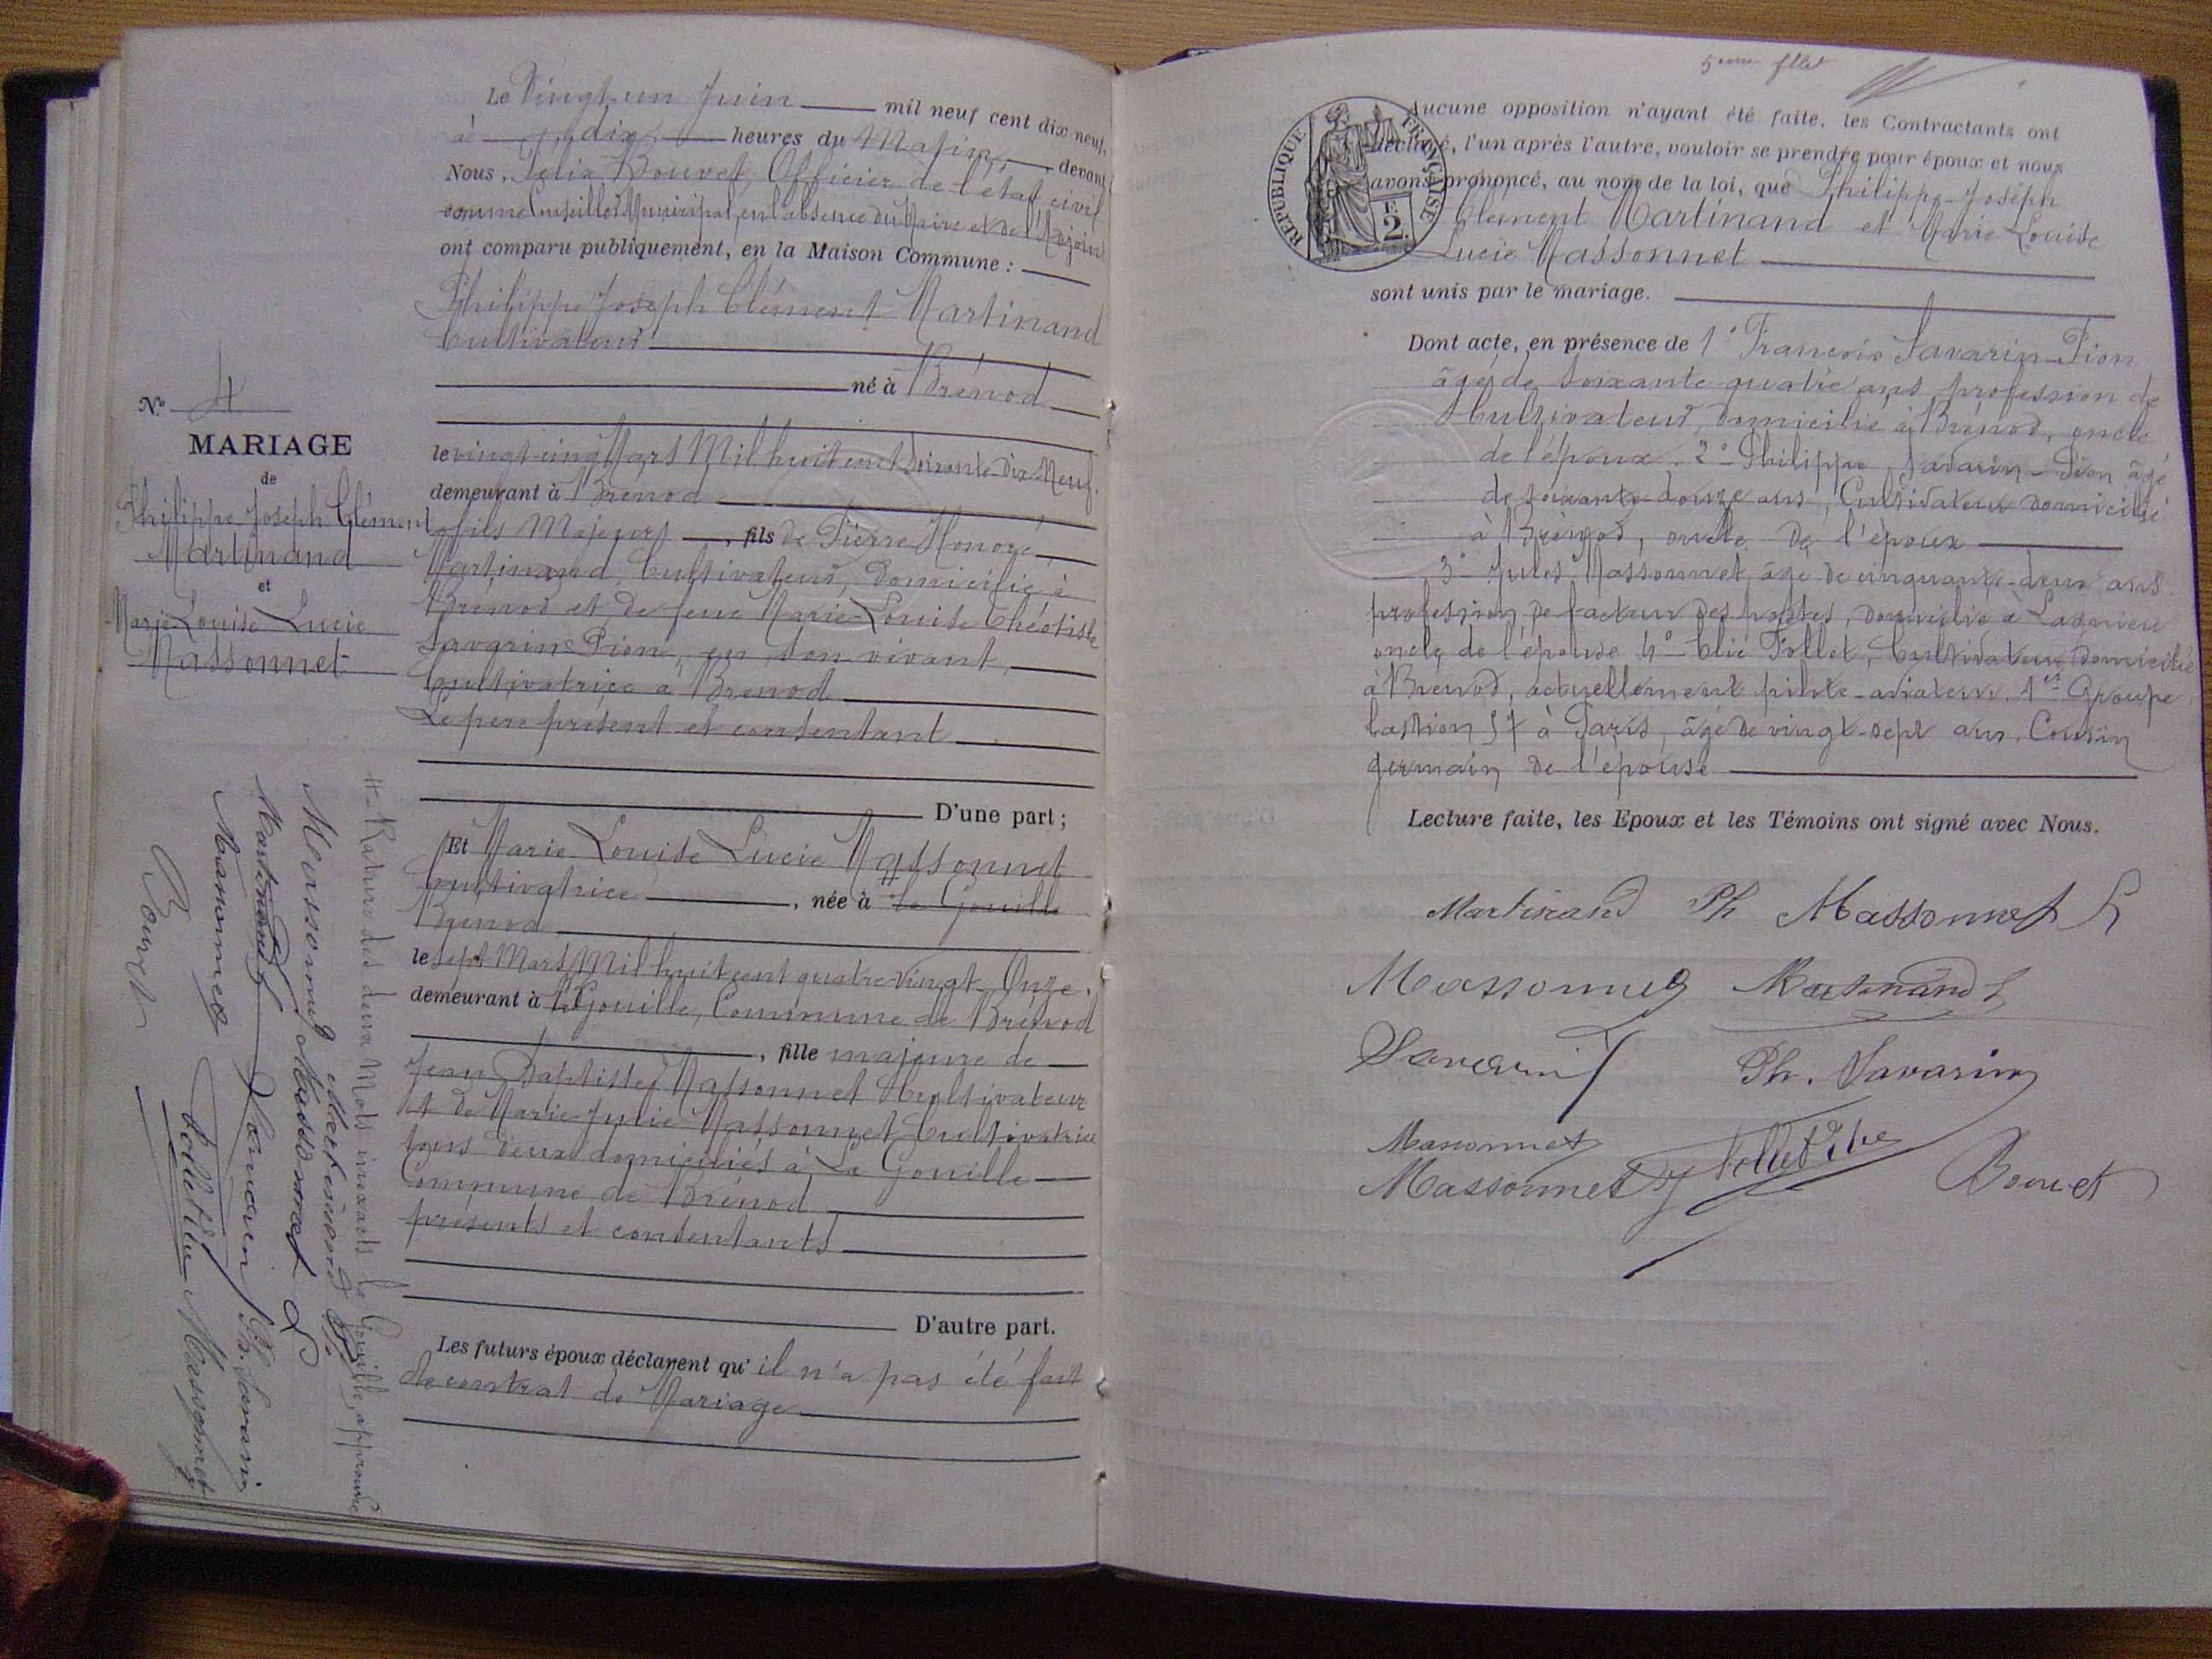 Le Vingt un Juin mil neuf cent dix neuf,
à dix heures du Matin, devant
Nous, Felix Bouvet, Officier de l'état civil
comme Conseiller Municipal, en l'absence du Maire et de l'Adjoint
ont comparu publiquement, en la Maison Commune :
Philippe Joseph Clément Martinand
Cultivateur
né à Brénod
le vingt-cinq Mars Mil huit cent Soixante Dix Neuf.
demeurant à Brénod
fils Majeur, fils de Pierre Honoré
Martinand, Cultivateur, domicilié à
Brénod et de feue Marie-Louise Théotiste
Savarin-Pion, en son vivant,
Cultivatrice à Brénod
Le père présent et consentant
D'une part ;
Et Marie Louise Lucie Massonnet
Cultivatrice, née à la Gouille
Brénod
le sept Mars Mil huit cent quatre-vingt Onze.
demeurant à la Gouille, Commune de Brénod
, fille majeure de
Jean Baptiste Massonnet Cultivateur
et de Marie Julie Massonnet Cultivatrice
tous deux domiciliés à La Gouille
Commune de Brénod
présents et consentants
D'autre part.
Les futurs époux déclarent qu' il n'a pas été fait
de contrat de Mariage
N.° 4
MARIAGE
de
Philippe Joseph Clément
Martinand
et
Marie Louise Lucie
Massonnet
# Raturé deux Mots inexacts la Gouille, approuvé
Martinand Ph.
Massonnet Massonnet L
Martinand Savarin Ph. Savarin
Massonnet Pollet Massonnet
Bouvet
5eme fllet
REPUBLIQUE FRANÇAISE
F.
2.
Aucune opposition n'ayant été faite, les Contractants ont
déclaré, l'un après l'autre, vouloir se prendre pour époux et nous
avons prononcé, au nom de la loi, que Philippe-Joseph
Clément Martinand et Marie Louise
Lucie Massonnet
sont unis par le mariage.
Dont acte, en présence de 1° François Savarin-Pion
âgé de soixante-quatre ans profession de
Cultivateur, domicilié à Brénod, oncle
de l'époux. 2° Philippe Savarin-Pion âgé
de soixante-douze ans, Cultivateur domicilié
à Brénod, oncle de l'époux
3° Jules Massonnet, âgé de cinquante-deux ans
profession de facteur des postes, domicilié à
oncle de l'épouse 4° Elie Pollet, Cultivateur domicilié
à Brénod, actuellement pilote-aviateur, 1er Groupe
bastion 57 à Paris, âgé de vingt-sept ans, Cousin
germain de l'épouse
Lecture faite, les Epoux et les Témoins ont signé avec Nous.
Martinand Ph Massonnet L
Massonnet Martinand
Savarin Ph. Savarin
Massonnet
Massonnet J Pollet Elie Bouvet